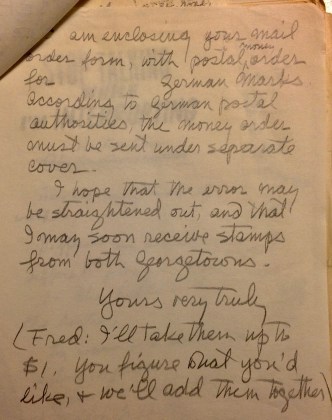 am enclosing your mail
order form, with postal money order
for German Marks
According to German postal
authorities the money order
must be sent under separate
cover.
I hope that the error may
be straightened out, and that
I may soon receive stamps
from both Georgetowns.
Yours very truly
(Fred: I'll take them up to
$1. You figure out you'd
like, & we'll add them together)